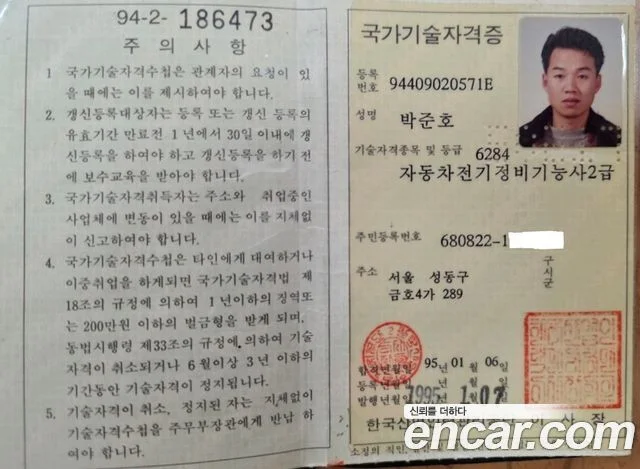 94-2- 186473
주 의 사 항
1 국가기술자격수첩은 관계자의 요청이 있
을 때에는 이를 제시하여야 합니다.
2. 갱신등록대상자는 등록 또는 갱신 등록의
유효기간 만료전 1년에서 30일 이내에 갱
신등록을 하여야 하고 갱신등록을 하기 전
에 보수교육을 받아야 합니다.
3. 국가기술자격취득자는 주소와 취업중인
사업체에 변동이 있을 때에는 이를 지체없
이 신고하여야 합니다.
4. 국가기술자격수첩은 타인에게 대여하거나
이중취업을 하게되면 국가기술자격법 제
18조의 규정에 의하여 1년이하의 징역또
는 200만원 이하의 벌금형을 받게 되며,
동법시행령 제33조의 규정에 의하여 기술
자격이 취소되거나 6월이상 3년 이하의
기간동안 기술자격이 정지됩니다.
5. 기술자격이 취소, 정지된 자는 지체없이
기술자격수첩을 주무부장관에게 반납 하
여야 합니다.
국가기술자격증
등록
번호 94409020571E
성명 박준호
기술자격종목 및 등급 6284
자동차전기정비기능사2급
주민등록번호 680822-1
주소 서울 성동구
금호4가 289
구
시
군
합격년월일 95년 01월 06일
등록년월일 년 월 일
발행년월일 1995. 1. 07
신뢰를 더하다
한국산
encar.com
소정의 직인,